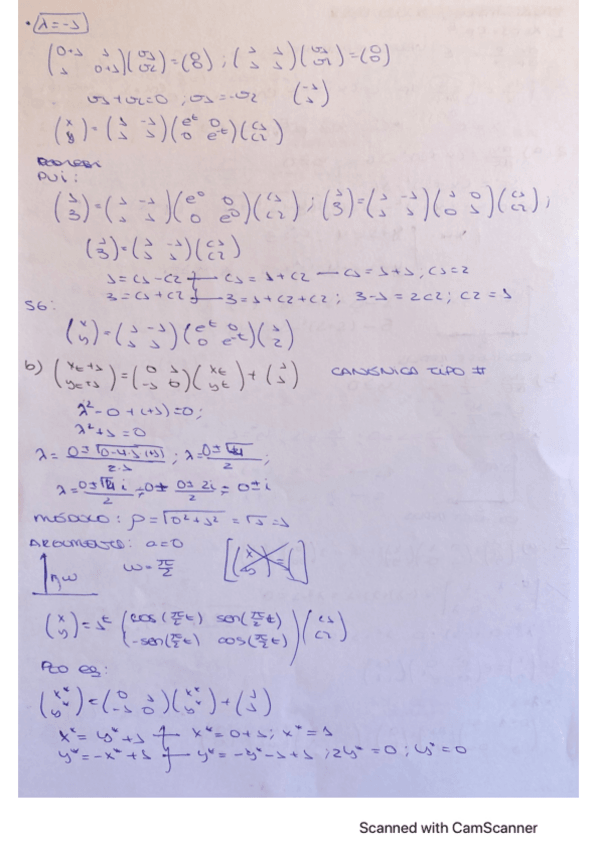 • λ=-1
(0+1 1 / 1 0+1)(v1 / v2)=(0 / 0) ; (1 1 / 1 1)(v1 / v2)=(0 / 0)
v1+v2=0 ; v1=-v2 (-1 / 1)
(x / y)=(1 -1 / 1 1)(e^t 0 / 0 e^-t)(c1 / c2)
PVI:
(1 / 3)=(1 -1 / 1 1)(e^0 0 / 0 e^0)(c1 / c2) ; (1 / 3)=(1 -1 / 1 1)(1 0 / 0 1)(c1 / c2) ;
(1 / 3)=(1 -1 / 1 1)(c1 / c2)
1=c1-c2 — c1=1+c2 — c1=1+1; c1=2
3=c1+c2 — 3=1+c2+c2 ; 3-1=2c2; c2=1
SG:
(x / y)=(1 -1 / 1 1)(e^t 0 / 0 e^-t)(1 / 2)
b) (xt+1 / yt+1)=(0 1 / -1 0)(xt / yt)+(1 / 1) CANÓNICA TIPO #
λ²-0+(+1)=0;
λ²+1=0
λ= 0±√0-4·1·(+1) / 2·1 ; λ= 0±√-4 / 2 ;
λ= 0±√4 i / 2 ; 0± 0±2i / 2 = 0±i
MÓDULO: ρ=√0²+1² = √1=1
ARGUMENTO: a=0
w w=π/2 [(x / y)=( ]
(x / y)=1^t (cos(π/2 t) sen(π/2 t) / -sen(π/2 t) cos(π/2 t))(c1 / c2)
Pto eq:
(x* / y*)=(0 1 / -1 0)(x* / y*)+(1 / 1)
x*= y*+1 — x*=0+1; x*=1
y*=-x*+1 — y*=-y*-1+1 ; 2y*=0 ; y*=0
Scanned with CamScanner